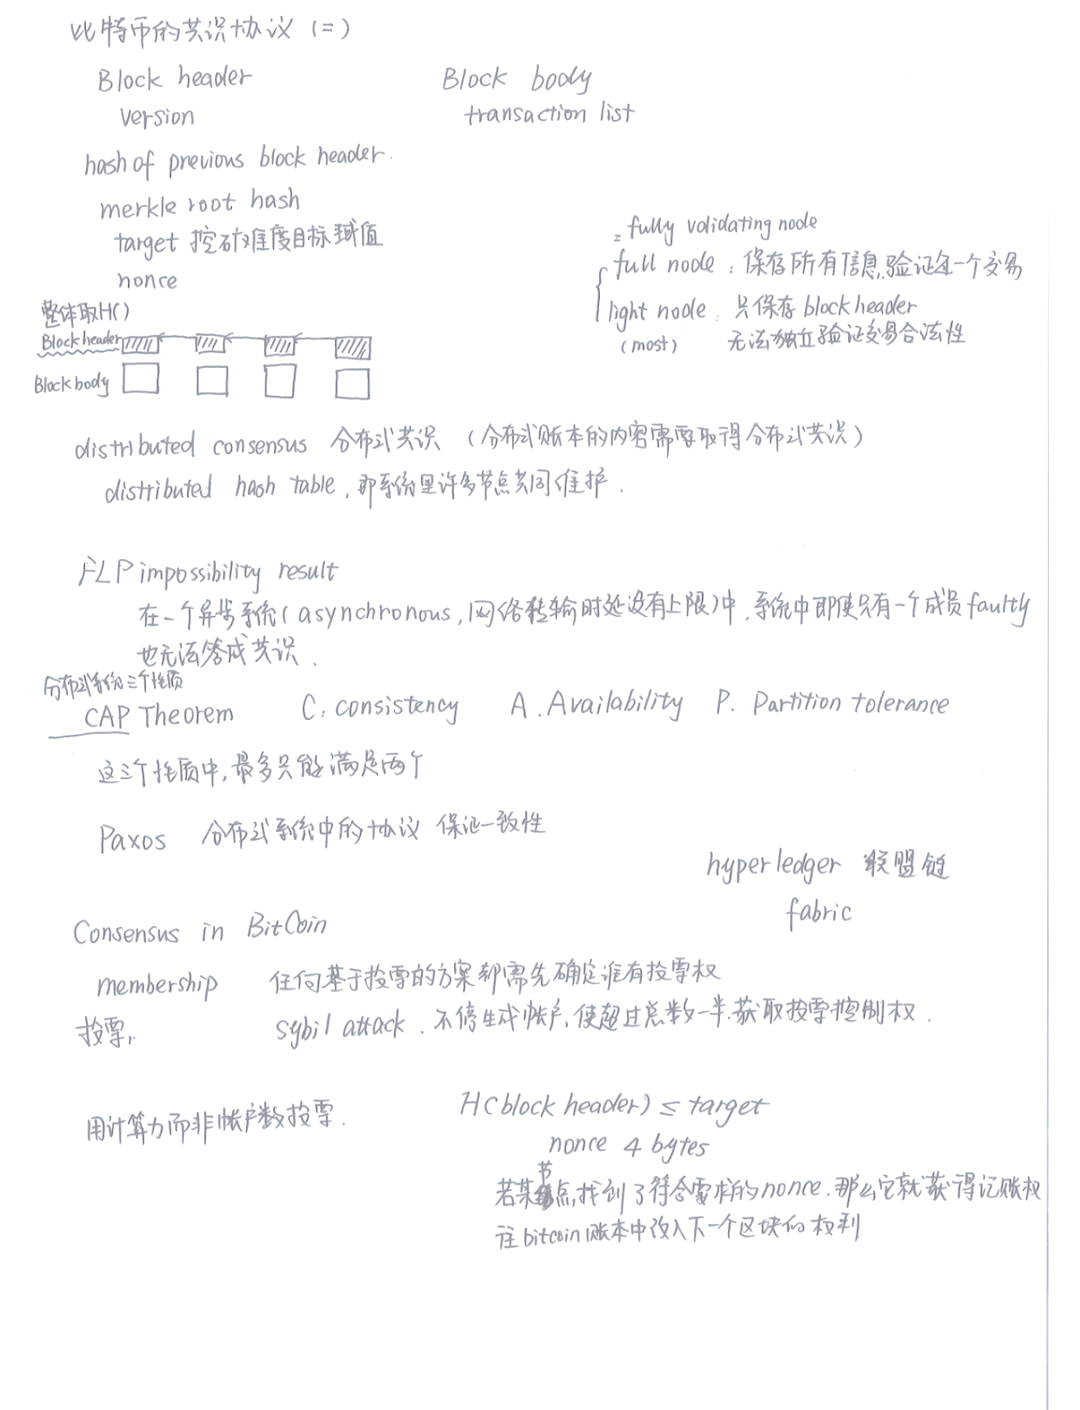 比特币的共识协议 (=)
Block header
version
hash of previous block header.
merkle root hash
target 挖矿难度目标阈值
nonce
Block body
transaction list
= fully validating node
full node : 保存所有信息,验证每一个交易
light node : 只保存 block header
(most) 无法独立验证交易合法性
整体取H()
Block header
Block body
distributed consensus 分布式共识 (分布式账本的内容需要取得分布式共识)
distributed hash table, 即系统里许多节点共同维护.
FLP impossibility result
在一个异步系统(asynchronous,网络传输时延没有上限)中,系统中即使只有一个成员faulty
也无法达成共识.
分布式系统三个性质
CAP Theorem C. consistency A. Availability P. Partition tolerance
这三个性质中,最多只能满足两个
Paxos 分布式系统中的协议 保证一致性
hyperledger 联盟链
fabric
Consensus in BitCoin
membership 任何基于投票的方案都需先确定谁有投票权
投票,
sybil attack. 不停生成帐户,使超过总数一半,获取投票控制权.
用计算力而非帐户数投票.
H(block header) ≤ target
nonce 4 bytes
若某节点,找到了符合要求的nonce.那么它就获得记账权
往bitcoin账本中改入下一个区块的权利